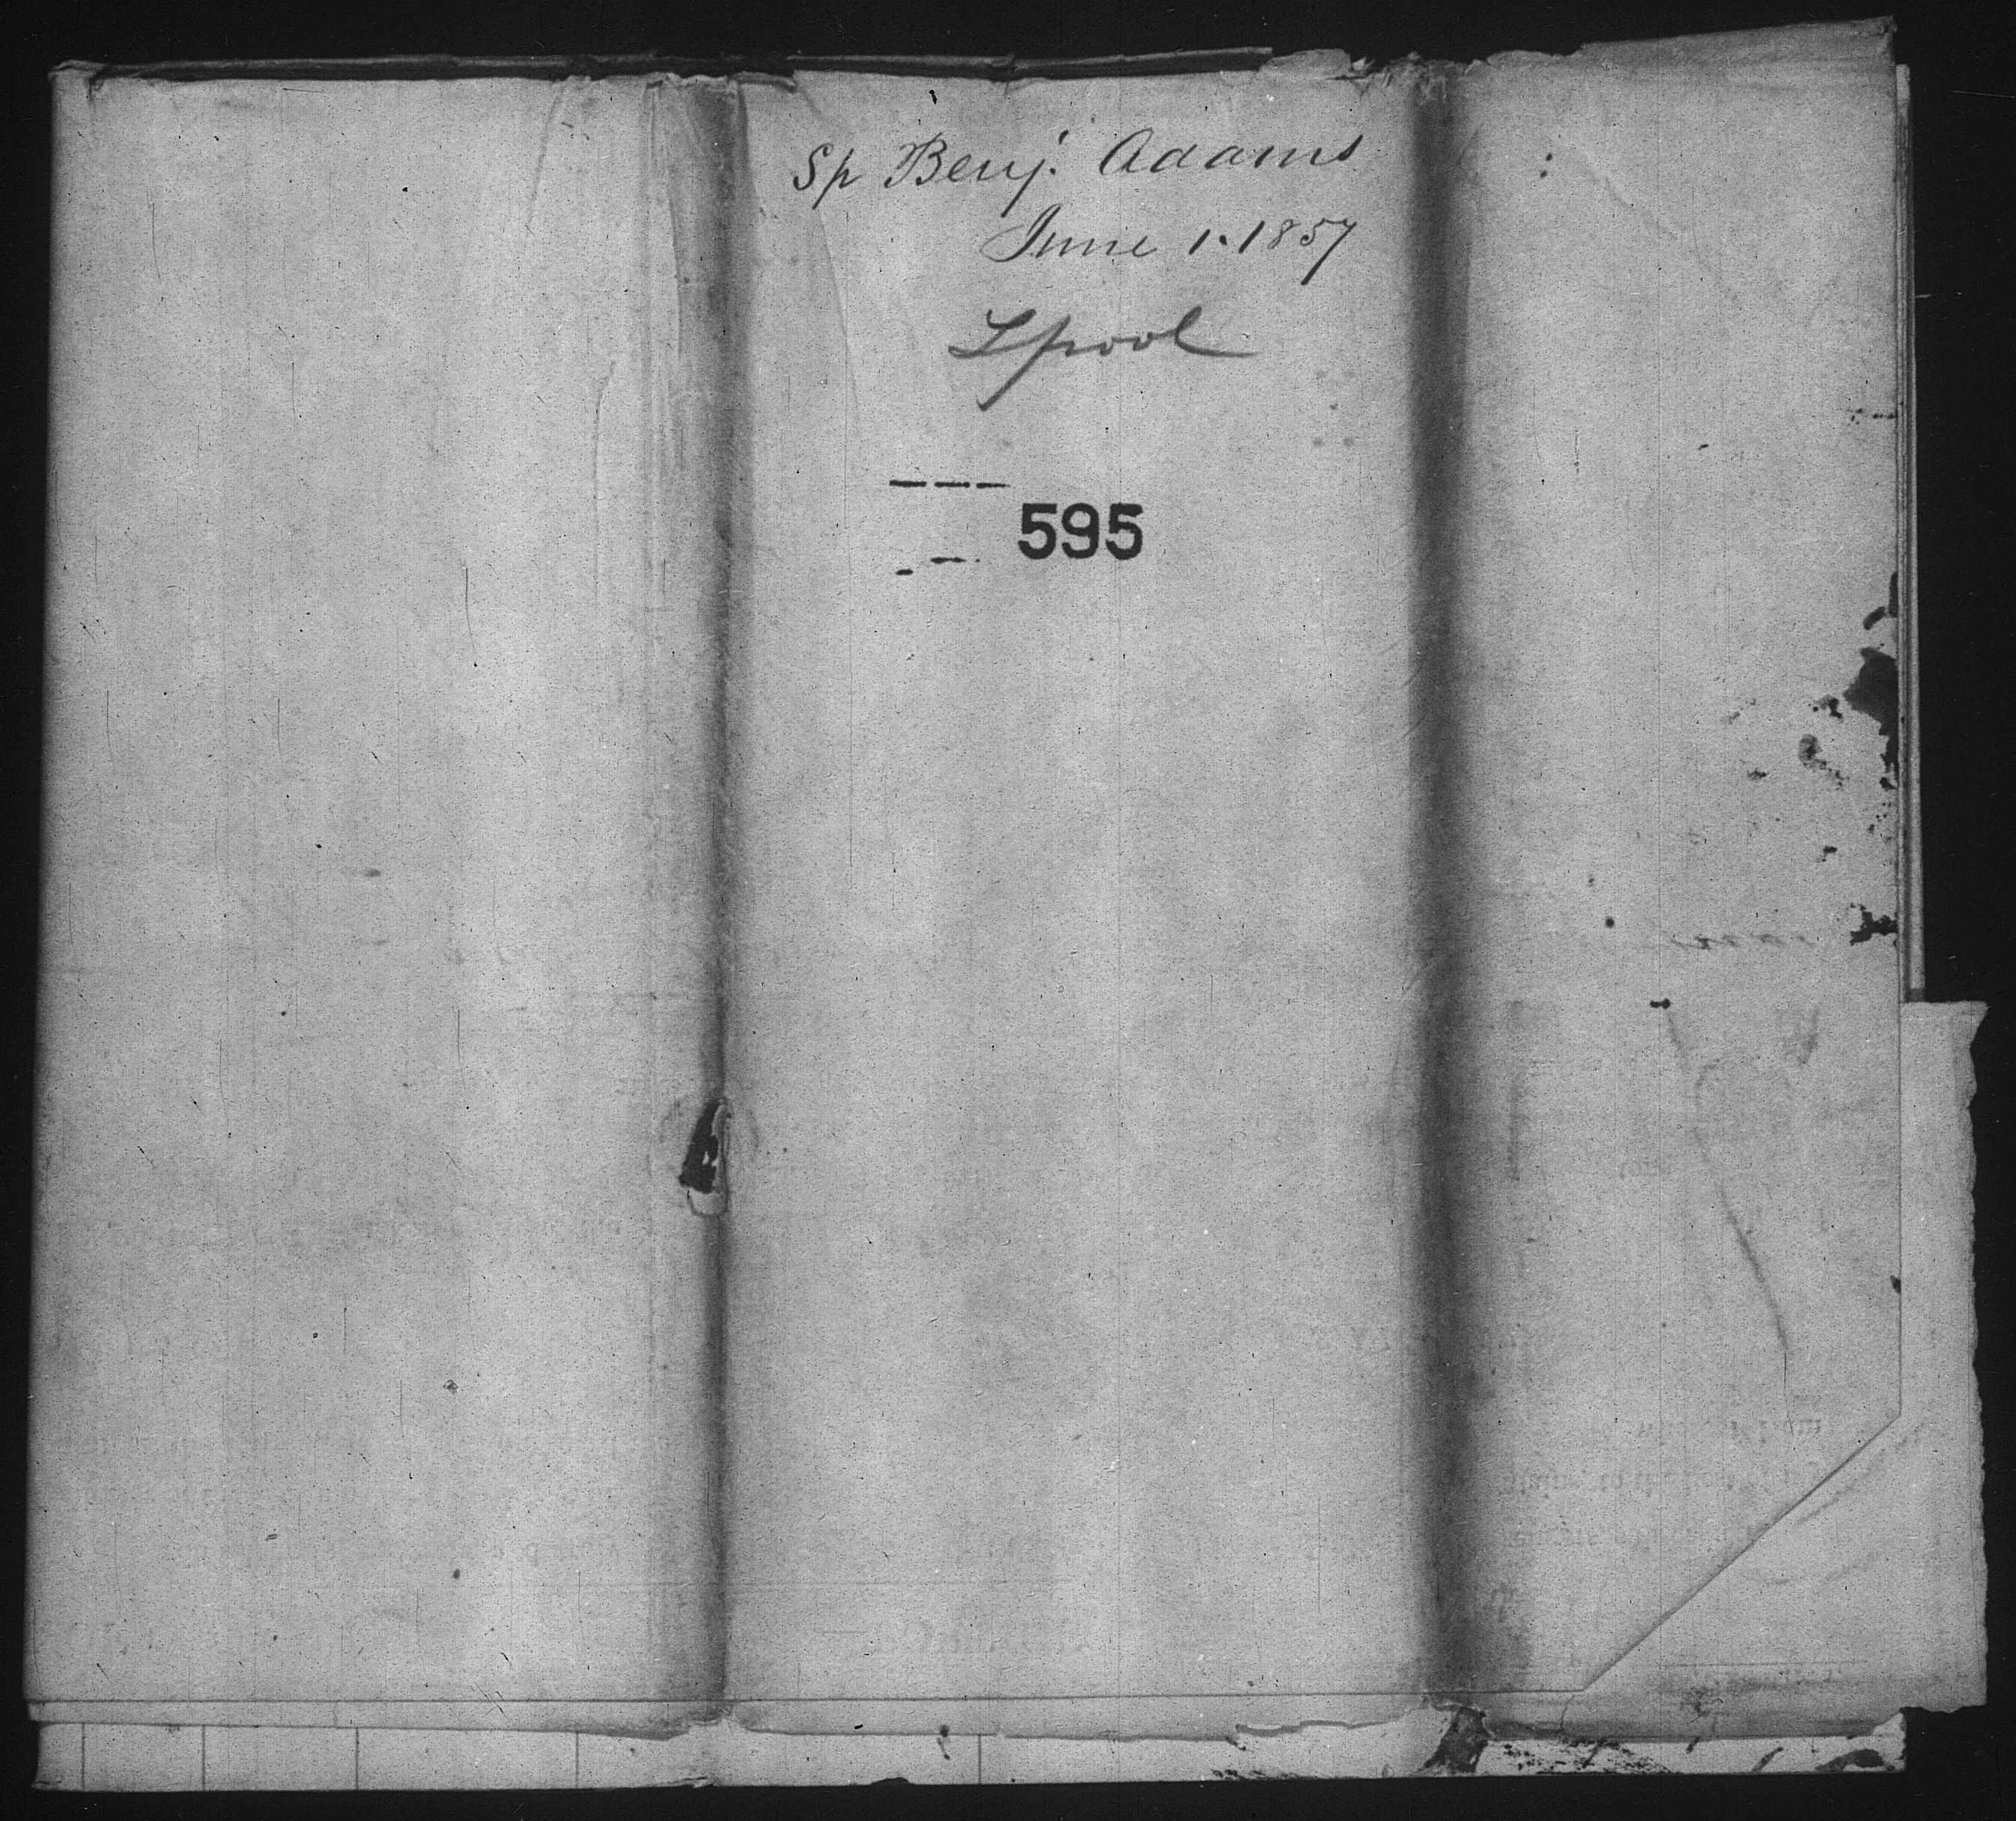 Sp Benj. Adams
June 1. 1857
Lpool
595